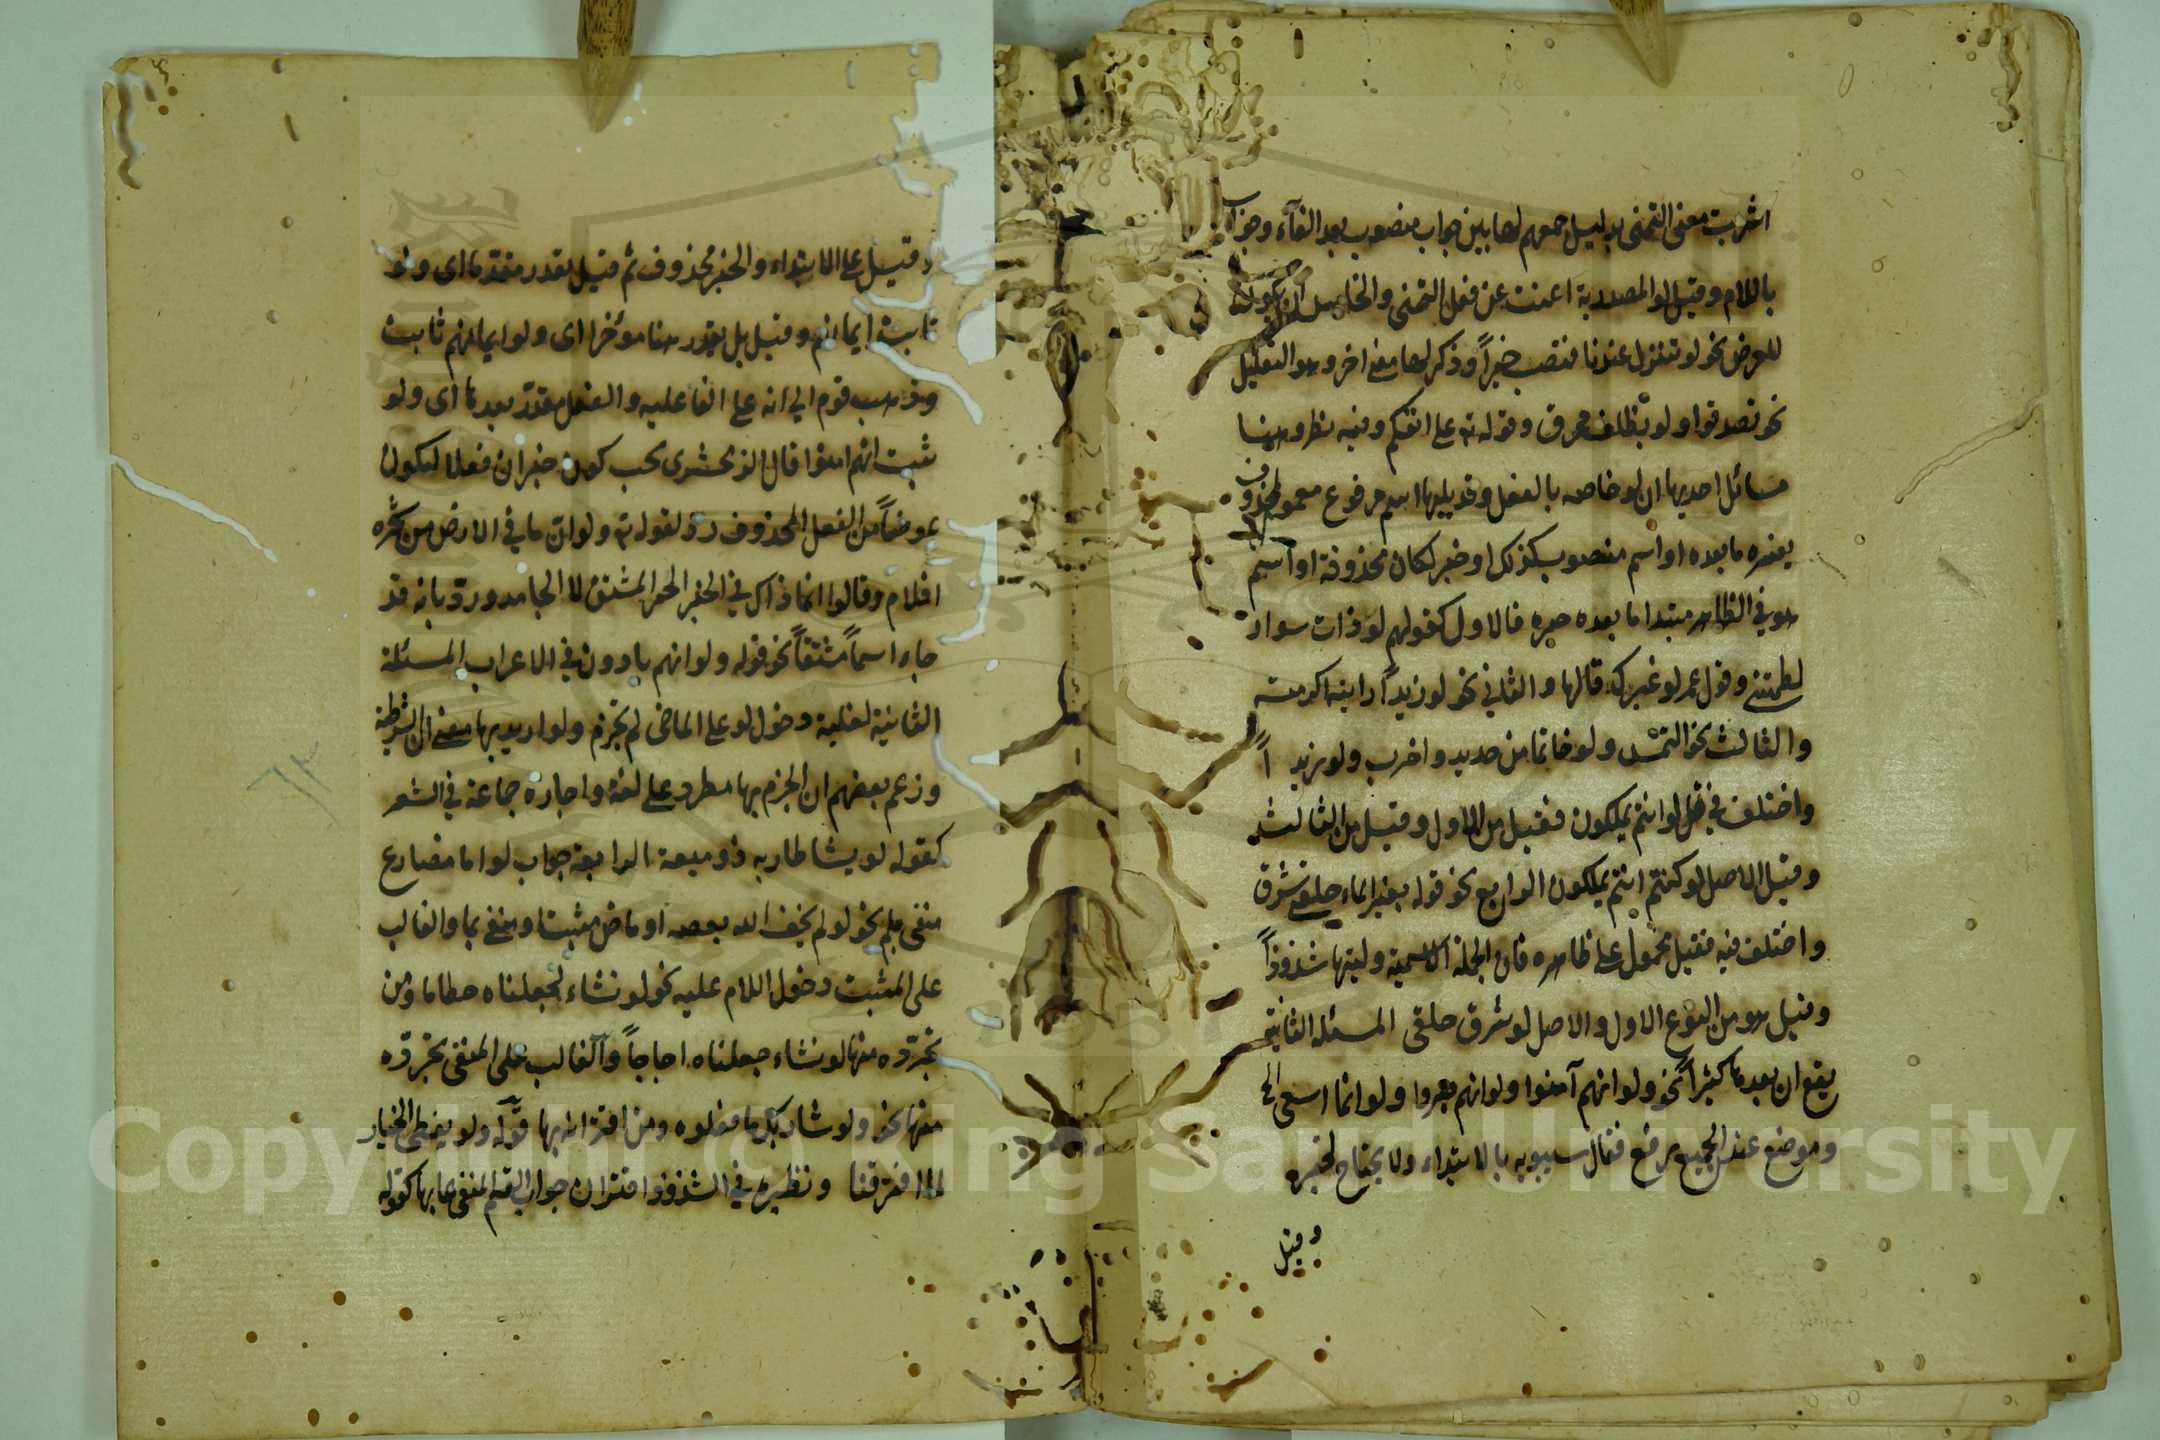 اشربت معنى التمنى بدليل جمعهم لها بين جواب منصوب بعد الفآء وجزآ
باللام وقيل لو المصدرية اغنت عن فعل التمنى والخامس ان يكون
للعرض نحو لو تنزل عندنا فتصيب خيراً وذكر لها معنى اخر وهو التقليل
نحو تصدقوا ولو بظلف محرق وقوله تع على انفسكم وفيه نظر وههنا
مسائل احديها ان لو خاصه بالفعل وقد يليها اسم مرفوع معمول محذوف
يفسره ما بعده او اسم منصوب كذلك او خبر لكان محذوفة او اسم
هو فى الظاهر مبتدا ما بعده خبره فالاول كقولهم لو ذات سوار
لطمتنى وقول عمر لو غيرك قالها والثانى نحو لو زيداً رايته اكرمته
والثالث نحو التمس ولو خاتما من حديد واضرب ولو زيداً
واختلف فى قل لو انتم تملكون فقيل من الاول وقيل من الثالث
وقيل الاصل لو كنتم انتم تملكون الرابع نحو قوله بغير الماء حلقى شرق
واختلف فيه فقيل محمول على ظاهره فان الجملة الاسمية وليتها شذوذاً
وقيل هو من النوع الاول والاصل لو شرق حلقى المسئلة الثانية
يقع ان بعدها كثيراً نحو ولو انهم آمنوا ولو انهم صبروا ولو انما اسعى الى
وموضع عند الجميع رفع فقال سيبويه بالابتداء ولا يحتاج لخبره
وقيل
وقيل على الابتداء والخبر محذوف ثم قيل يقدر مقدما اى ولو
ثابت ايمانهم وقيل بل يقدر هنا مؤخرا اى ولو ايمانهم ثابت
وذهب قوم الى انه على الفاعليه والفعل مقدر بعدها اى ولو
ثبت انهم امنوا قال الزمخشرى يجب كون خبر ان فعلا ليكون
عوضاً من الفعل المحذوف ورد لقوله تع ولو ان ما فى الارض من شجرة
اقلام وقالوا انما ذاك فى الخبر المشتق لا الجامد ورد بانه قد
جاء اسماً مشتقاً نحو قوله ولو انهم بادون فى الاعراب المسئلة
الثانية لغلبة دخول لو على الماضى لم تجزم ولو اريد بها معنى ان الشرطية
وزعم بعضهم ان الجزم بها مطرد على لغة واجازه جماعة فى الشعر
كقوله لو يشا طار به ذو ميعة الرابعة جواب لو اما مضارع
منفى بلم نحو لو لم يخف الله يعصه او ماض مثبت او منفى بما والغالب
على المثبت دخول اللام عليه نحو لو نشاء لجعلناه حطاما ومن
تجرّده منها لو نشاء جعلناه اجاجاً والغالب على المنفى تجرّده
منها نحو ولو شاء ربك ما فعلوه ومن اقترانه بها قوله ولو يعطى الخيار
لما افترقنا ونظيره فى الشذوذ اقتران جواب القسم المنفى بما بها كقوله
Copyright © King Saud University
1957